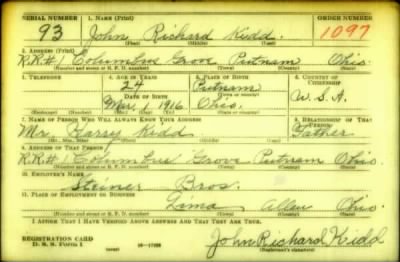 SERIAL NUMBER 1. NAME (Print) ORDER NUMBER
93 John Richard Kidd 1097
(First) (Middle) (Last)
2. ADDRESS (Print)
R.R.#1 Columbus Grove Putnam Ohio
(Number and street or R. F. D. number) (Town) (County) (State)
3. TELEPHONE 4. AGE IN YEARS 5. PLACE OF BIRTH 6. COUNTRY OF CITIZENSHIP
24 Putnam
DATE OF BIRTH (Town or county)
Mar. 1 1916 Ohio. U.S.A.
(Exchange) (Number) (Mo.) (Day) (Yr.) (State or country)
7. NAME OF PERSON WHO WILL ALWAYS KNOW YOUR ADDRESS 8. RELATIONSHIP OF THAT PERSON
Mr. Harry Kidd Father
(Mr., Mrs., Miss) (First) (Middle) (Last)
9. ADDRESS OF THAT PERSON
R.R.#1 Columbus Grove Putnam Ohio
(Number and street or R. F. D. number) (Town) (County) (State)
10. EMPLOYER'S NAME
Steiner Bros.
11. PLACE OF EMPLOYMENT OR BUSINESS
Lima Allen Ohio.
(Number and street or R. F. D. number) (Town) (County) (State)
I AFFIRM THAT I HAVE VERIFIED ABOVE ANSWERS AND THAT THEY ARE TRUE.
REGISTRATION CARD
D. S. S. FORM 1 (over) John Richard Kidd
(Registrant's signature)